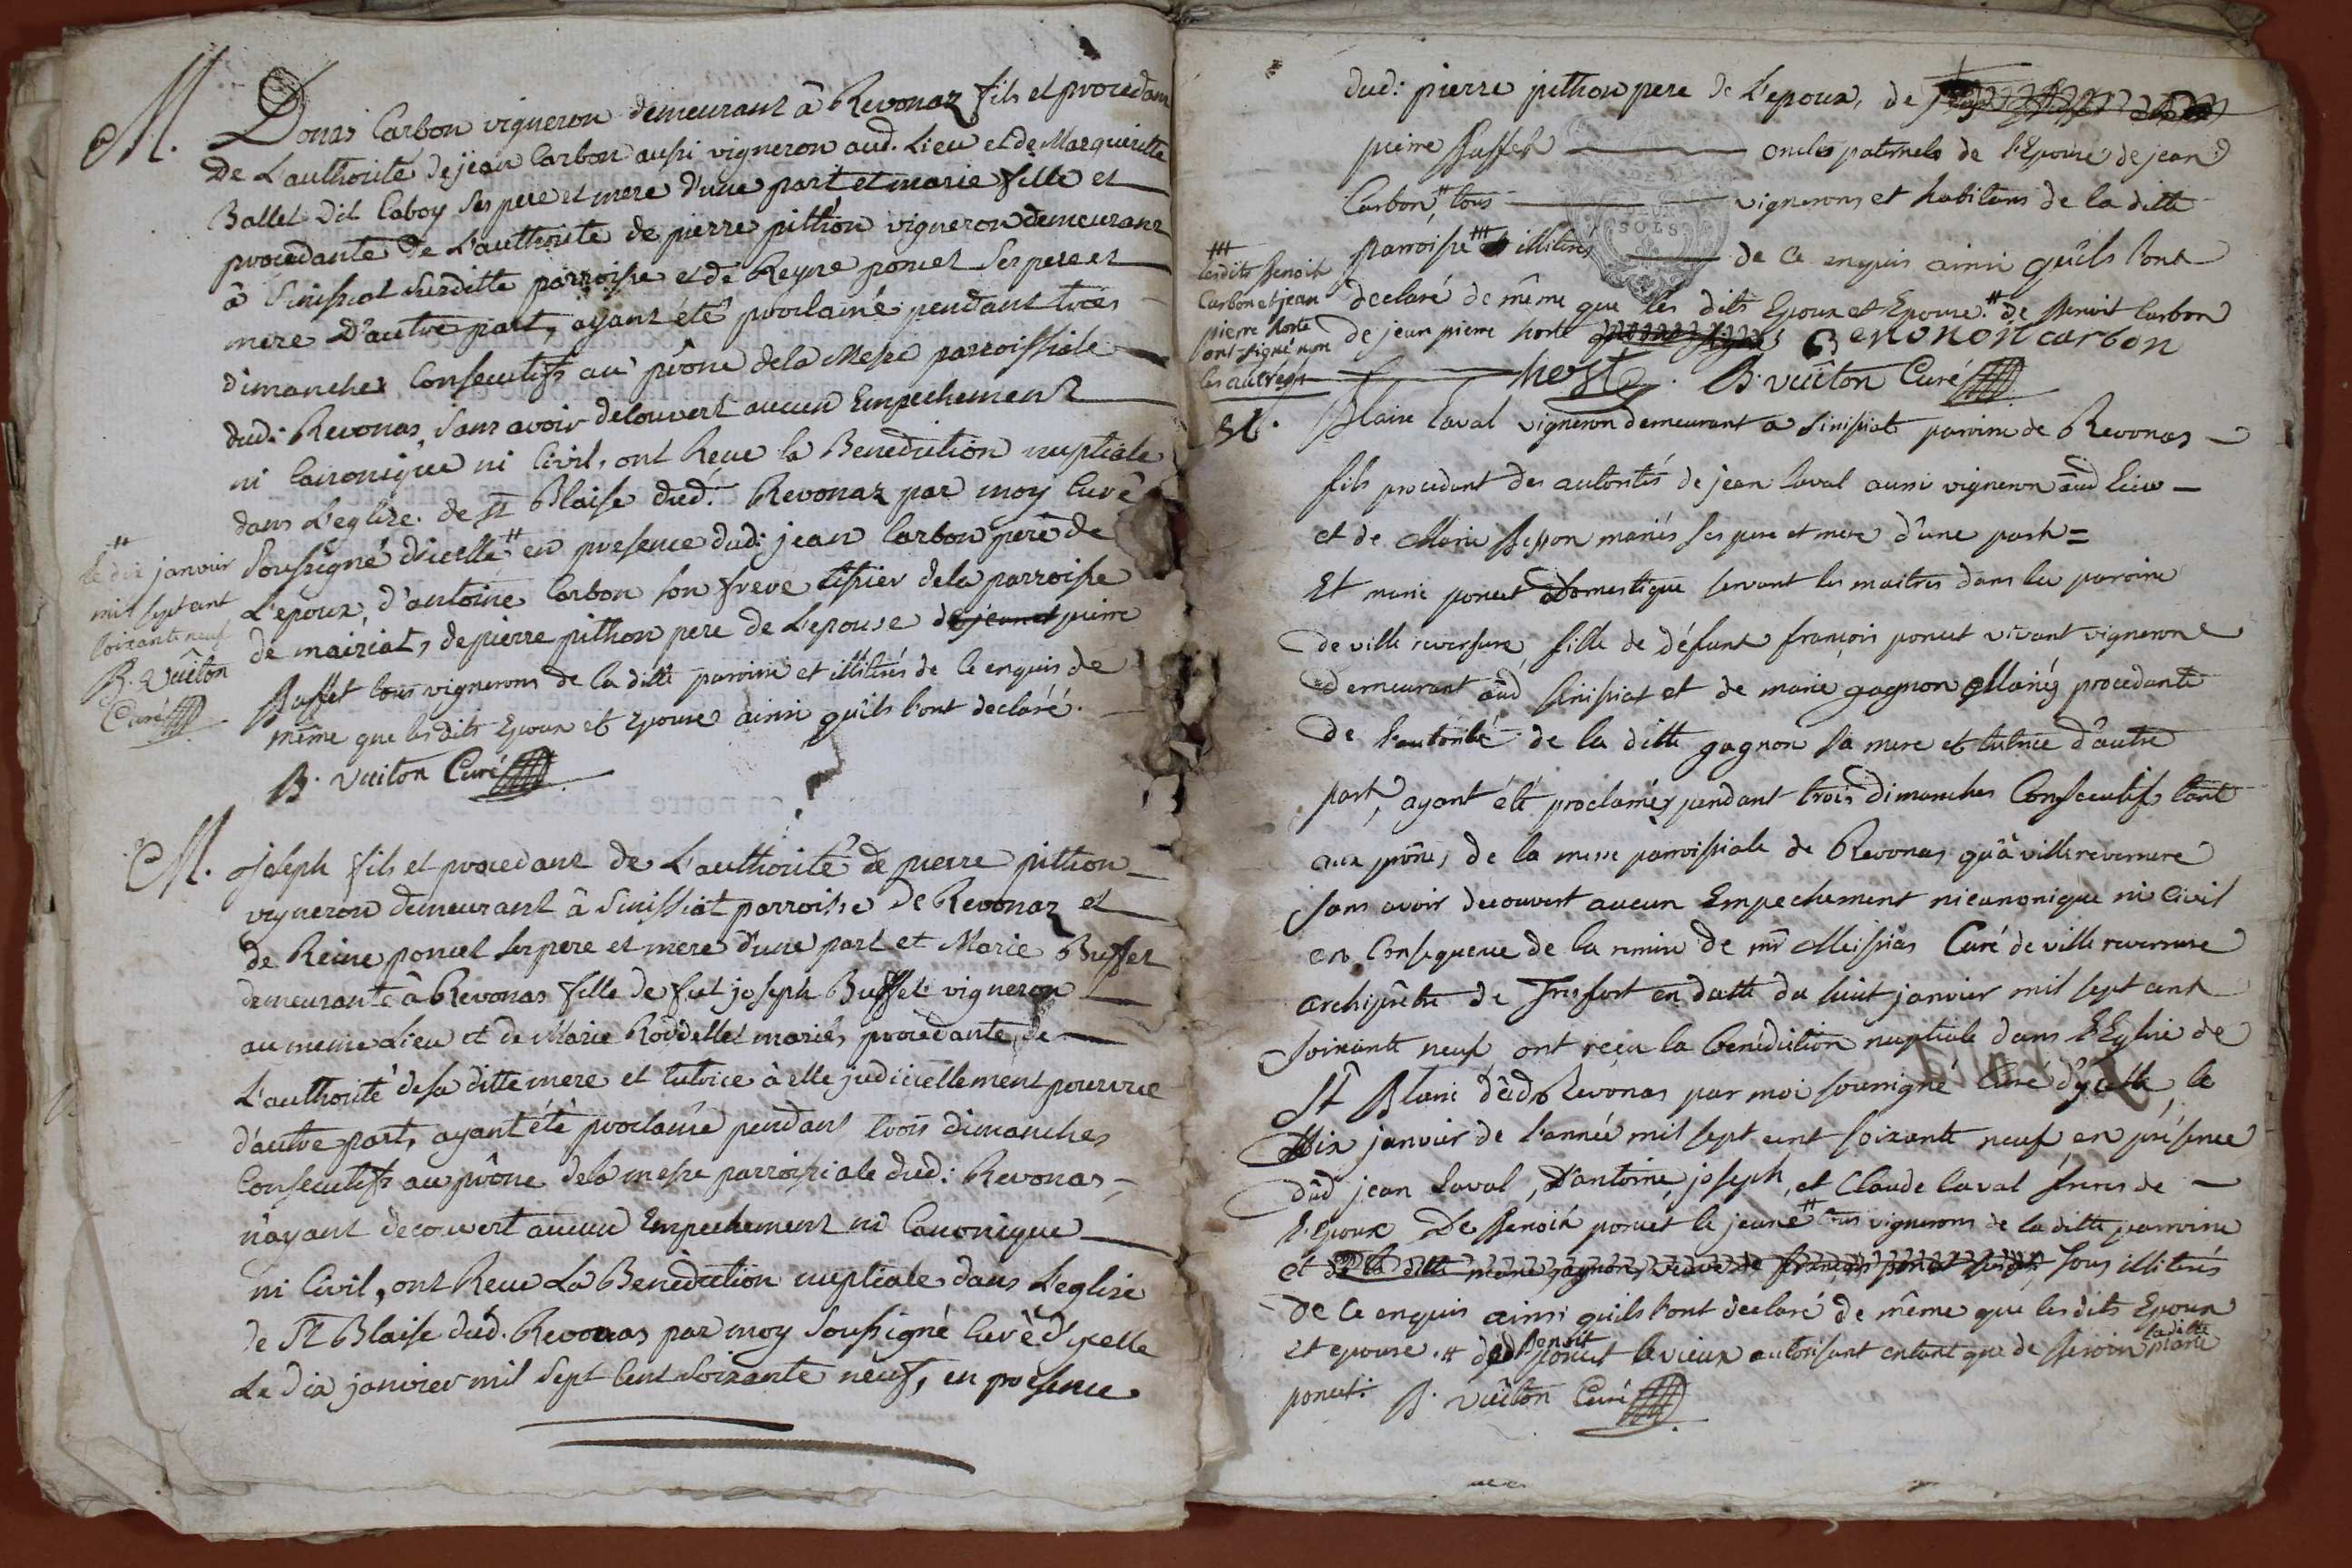 M. Donas Carbon vigneron demeurant â Revonaz fils et procedant
De L'authorité de jean Carbon aussi vigneron aud. Lieu et de Marguerite
Ballet dit Caboy ses pere et mere d'une part et marie fille et
procedante de L'authorité de pierre pithon vigneron demeurant
â Sinissiat susditte parroisse et de Reyne poncet ses pere et
mere D'autre part, ayant été proclamé pendant trois
dimanches Consecutifs au prône de la Messe parroissiale
dud: Revonas, sans avoir decouvert aucun Empechement
ni Canonique ni Civil, ont Recue la Benediction nuptiale
dans L'eglise de St Blaise dud: Revonaz par moy Curé
Soussigné d'icelle # en presence dud: jean Carbon pere de
L'epoux, d'antoine Carbon son frere tissier de la parroisse
de mairiat, de pierre pithon pere de L'epouse de jeanet pierre
Buffet tous vignerons de la ditte paroisse et illiterés de ce enquis de
même que les dits Epoux et Epouse ainsi qu'ils l'ont declaré.
B. vuiton Curé
# le dix janvier
mil sept cent
soixante neuf
B. Vuiton
Curé
M. joseph fils et procedant de L'authorité de pierre pithon
vigneron demeurant â Sinissiat parroisse de Revonaz et
de Reine poncet ses pere et mere d'une part et Marie Buffet
demeurante â Revonas fille de fut joseph Buffet vigneron
au meme Lieu et de Marie Roddellet mariés procedante de
L'authorité de sa ditte mere et tutrice à elle judiciellement pourvue
d'autre part, ayant été proclamé pendant trois dimanches
Consecutifs au prône de la messe parroissiale dud: Revonas,
n'ayant decouvert aucun Empechement ni Canonique
ni Civil, ont Recue La Benediction nuptiale dans L'eglise
de St Blaise dud. Revonas par moy Soussigné Curé d'ycelle
Le dix janvier mil sept Cent soixante neuf, en presence
dud: pierre pithon pere de L'epoux, de
pierre Buffet oncles paternels de l'Epouse de jean
Carbon # tous vignerons et habitans de la ditte
parroisse ### illiterés de ce enquis ainsi qu'ils l'ont
declaré de même que les dits Epoux et Epouse. # de Benoit Carbon
de jean pierre horte Benonoit carbon
horste B. vuiton Curé
### lesdits Benoit
Carbon et jean
pierre horte
ont signé non
les autres
M. Blaise Laval vigneron demeurant a Sinissiat paroisse de Revonas
fils procedant des autorités de jean Laval aussi vigneron aud lieu
et de Marie Besson mariés ses pere et mere d'une part =
Et marie poncet Domestique servant les maitres dans la paroisse
de ville reversure fille de défunt françois poncet vivant vigneron
demeurant aud Sinissiat et de marie gagnon Mariés procedante
de l'autorité de la ditte gagnon sa mere et tutrice d'autre
part, ayant été proclamés pendant trois dimanches Consecutifs tant
aux prônes de la messe parroissiale de Revonas qu'à villereversure
sans avoir decouvert aucun Empechement ni canonique ni Civil
en Consequence de la remise de mr Meissias Curé de ville reversure
archiprêtre de Treffort en datte du huit janvier mil sept cent
soixante neuf ont reçu la benédiction nuptiale dans l'Eglise de
St Blaise dud Revonas par moi soussigné Curé d'ycelle, le
Dix janvier de l'année mil sept cent soixante neuf en présence
dud jean Laval, d'antoine, joseph, et Claude Laval freres de
l'Epoux De Benoit poncet le jeune # tous vignerons de la ditte parroisse
et de la ditte marie gagnon veuve de françois poncet tous illiterés
de ce enquis ainsi qu'ils l'ont declaré de même que les dits Epoux
et epouse. # dud Benoit poncet le vieux autorisant entant que de besoin la ditte marie
poncet. B. vuiton Curé